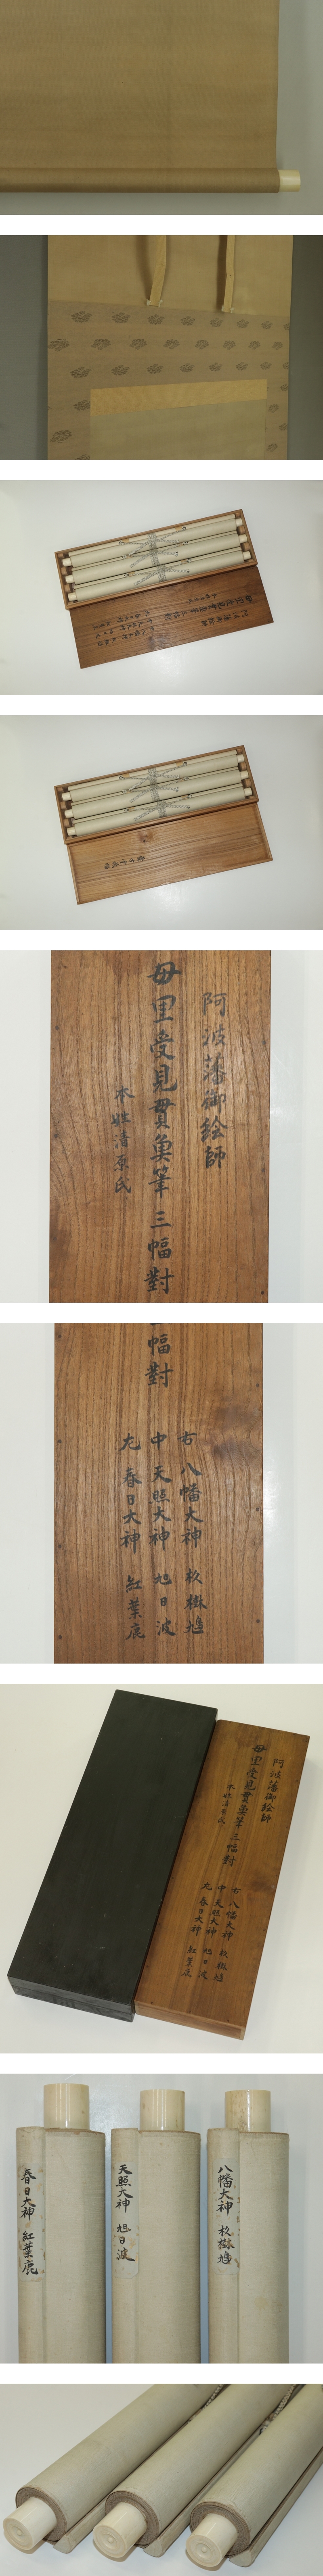 阿波藩御絵師
毋里受見貫魚筆三幅對
本姓清原氏
幅對
右 八幡大神
中 天照大神 旭日波
左 春日大神 紅葉鹿
阿波藩御絵師
毋里受見貫魚筆三幅對
本姓清原氏
右 八幡大神
中 天照大神 旭日波
左 春日大神 紅葉鹿
八幡大神
天照大神 旭日波
春日大神 紅葉鹿